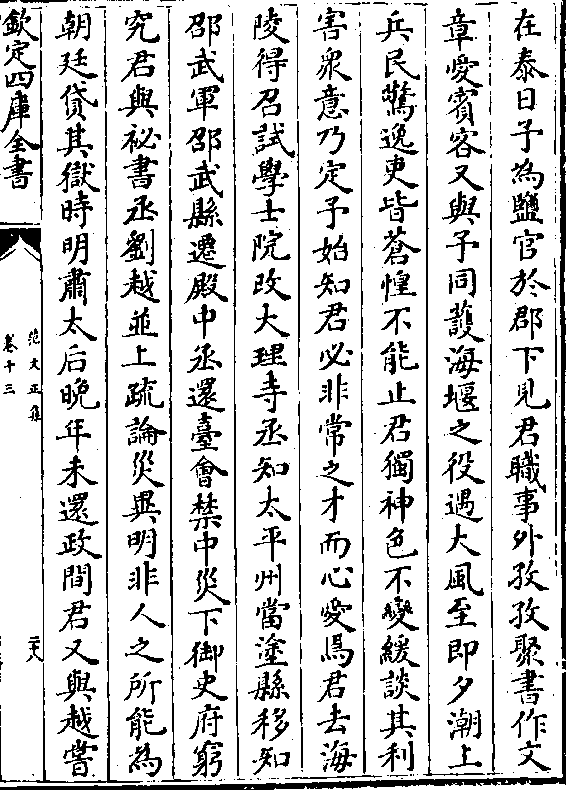 在泰日予為鹽官於郡下見君職事外孜孜聚書作文
章愛賓客又與予同護海堰之役遇大風至即夕潮上
兵民驚逸吏皆蒼惶不能止君獨神色不變緩談其利
害衆意乃定予始知君必非常之才而心愛焉君去海
陵得召試學士院改大理寺丞知太平州當塗縣移知
邵武軍邵武縣遷殿中丞還臺會禁中災下御史府窮
究君與祕書丞劉越並上疏論災異明非人之所能為
朝廷貸其獄時明肅太后晚年未還政間君又與越嘗
欽定四庫全書
范文正集
卷十三
二六